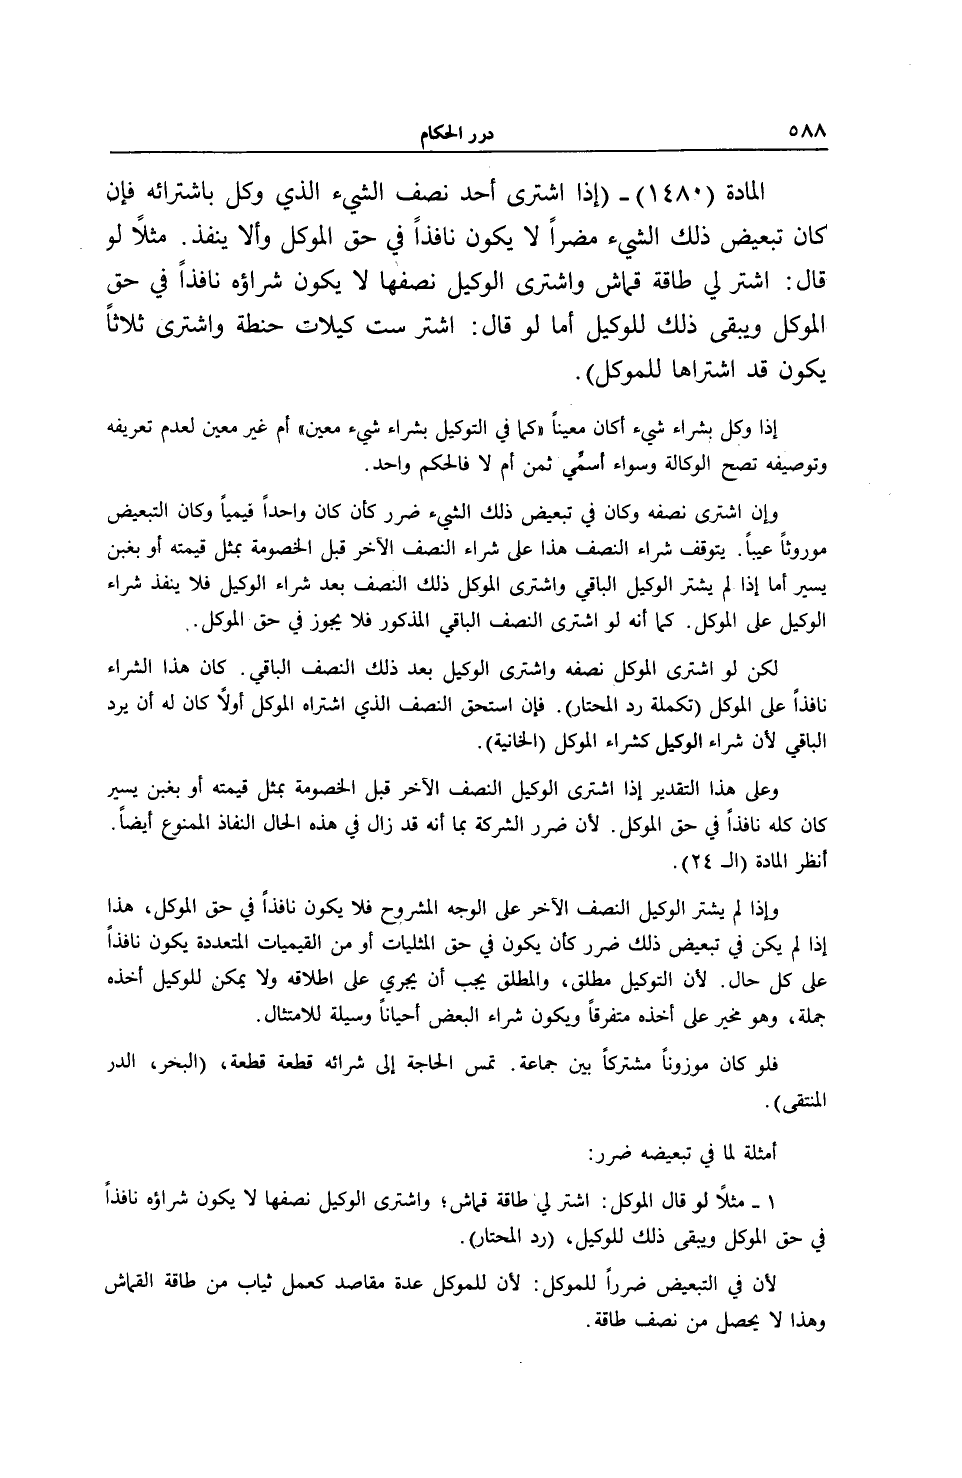 ٥٨٨
درر الحكام
المادة (١٤٨٠) ـ (إذا اشترى أحد نصف الشيء الذي وكل باشترائه فإن
كان تبعيض ذلك الشيء مضراً لا يكون نافذاً في حق الموكل وألا ينفذ. مثلاً لو
قال: اشتر لي طاقة قماش واشترى الوكيل نصفها لا يكون شراؤه نافذاً في حق
الموكل ويبقى ذلك للوكيل أما لو قال: اشتر ست كيلات حنطة واشترى ثلاثاً
يكون قد اشتراها للموكل).
إذا وكل بشراء شيء أكان معيناً «كما في التوكيل بشراء شيء معين» أم غير معين لعدم تعريفه
وتوصيفه تصح الوكالة وسواء أسمِّي ثمن أم لا فالحكم واحد.
وإن اشترى نصفه وكان في تبعيض ذلك الشيء ضرر كأن كان واحداً قيمياً وكان التبعيض
موروثاً عيباً. يتوقف شراء النصف هذا على شراء النصف الآخر قبل الخصومة بمثل قيمته أو بغبن
يسير أما إذا لم يشتر الوكيل الباقي واشترى الموكل ذلك النصف بعد شراء الوكيل فلا ينفذ شراء
الوكيل على الموكل. كما أنه لو اشترى النصف الباقي المذكور فلا يجوز في حق الموكل.
لكن لو اشترى الموكل نصفه واشترى الوكيل بعد ذلك النصف الباقي. كان هذا الشراء
نافذاً على الموكل (تكملة رد المحتار). فإن استحق النصف الذي اشتراه الموكل أولاً كان له أن يرد
الباقي لأن شراء الوكيل كشراء الموكل (الخانية).
وعلى هذا التقدير إذا اشترى الوكيل النصف الآخر قبل الخصومة بمثل قيمته أو بغبن يسير
كان كله نافذاً في حق الموكل. لأن ضرر الشركة بما أنه قد زال في هذه الحال النفاذ الممنوع أيضاً.
أنظر المادة (الـ ٢٤).
وإذا لم يشتر الوكيل النصف الآخر على الوجه المشروح فلا يكون نافذاً في حق الموكل، هذا
إذا لم يكن في تبعيض ذلك ضرر كأن يكون في حق المثليات أو من القيميات المتعددة يكون نافذاً
على كل حال. لأن التوكيل مطلق، والمطلق يجب أن يجري على اطلاقه ولا يمكن للوكيل أخذه
جملة، وهو مخير على أخذه متفرقاً ويكون شراء البعض أحياناً وسيلة للامتثال.
فلو كان موزوناً مشتركاً بين جماعة. تمس الحاجة إلى شرائه قطعة قطعة، (البحر، الدر
المنتقى).
أمثلة لما في تبعيضه ضرر:
١ ـ مثلاً لو قال الموكل: اشتر لي طاقة قماش؛ واشترى الوكيل نصفها لا يكون شراؤه نافذاً
في حق الموكل ويبقى ذلك للوكيل، (رد المحتار).
لأن في التبعيض ضرراً للموكل: لأن للموكل عدة مقاصد كعمل ثياب من طاقة القماش
وهذا لا يحصل من نصف طاقة.